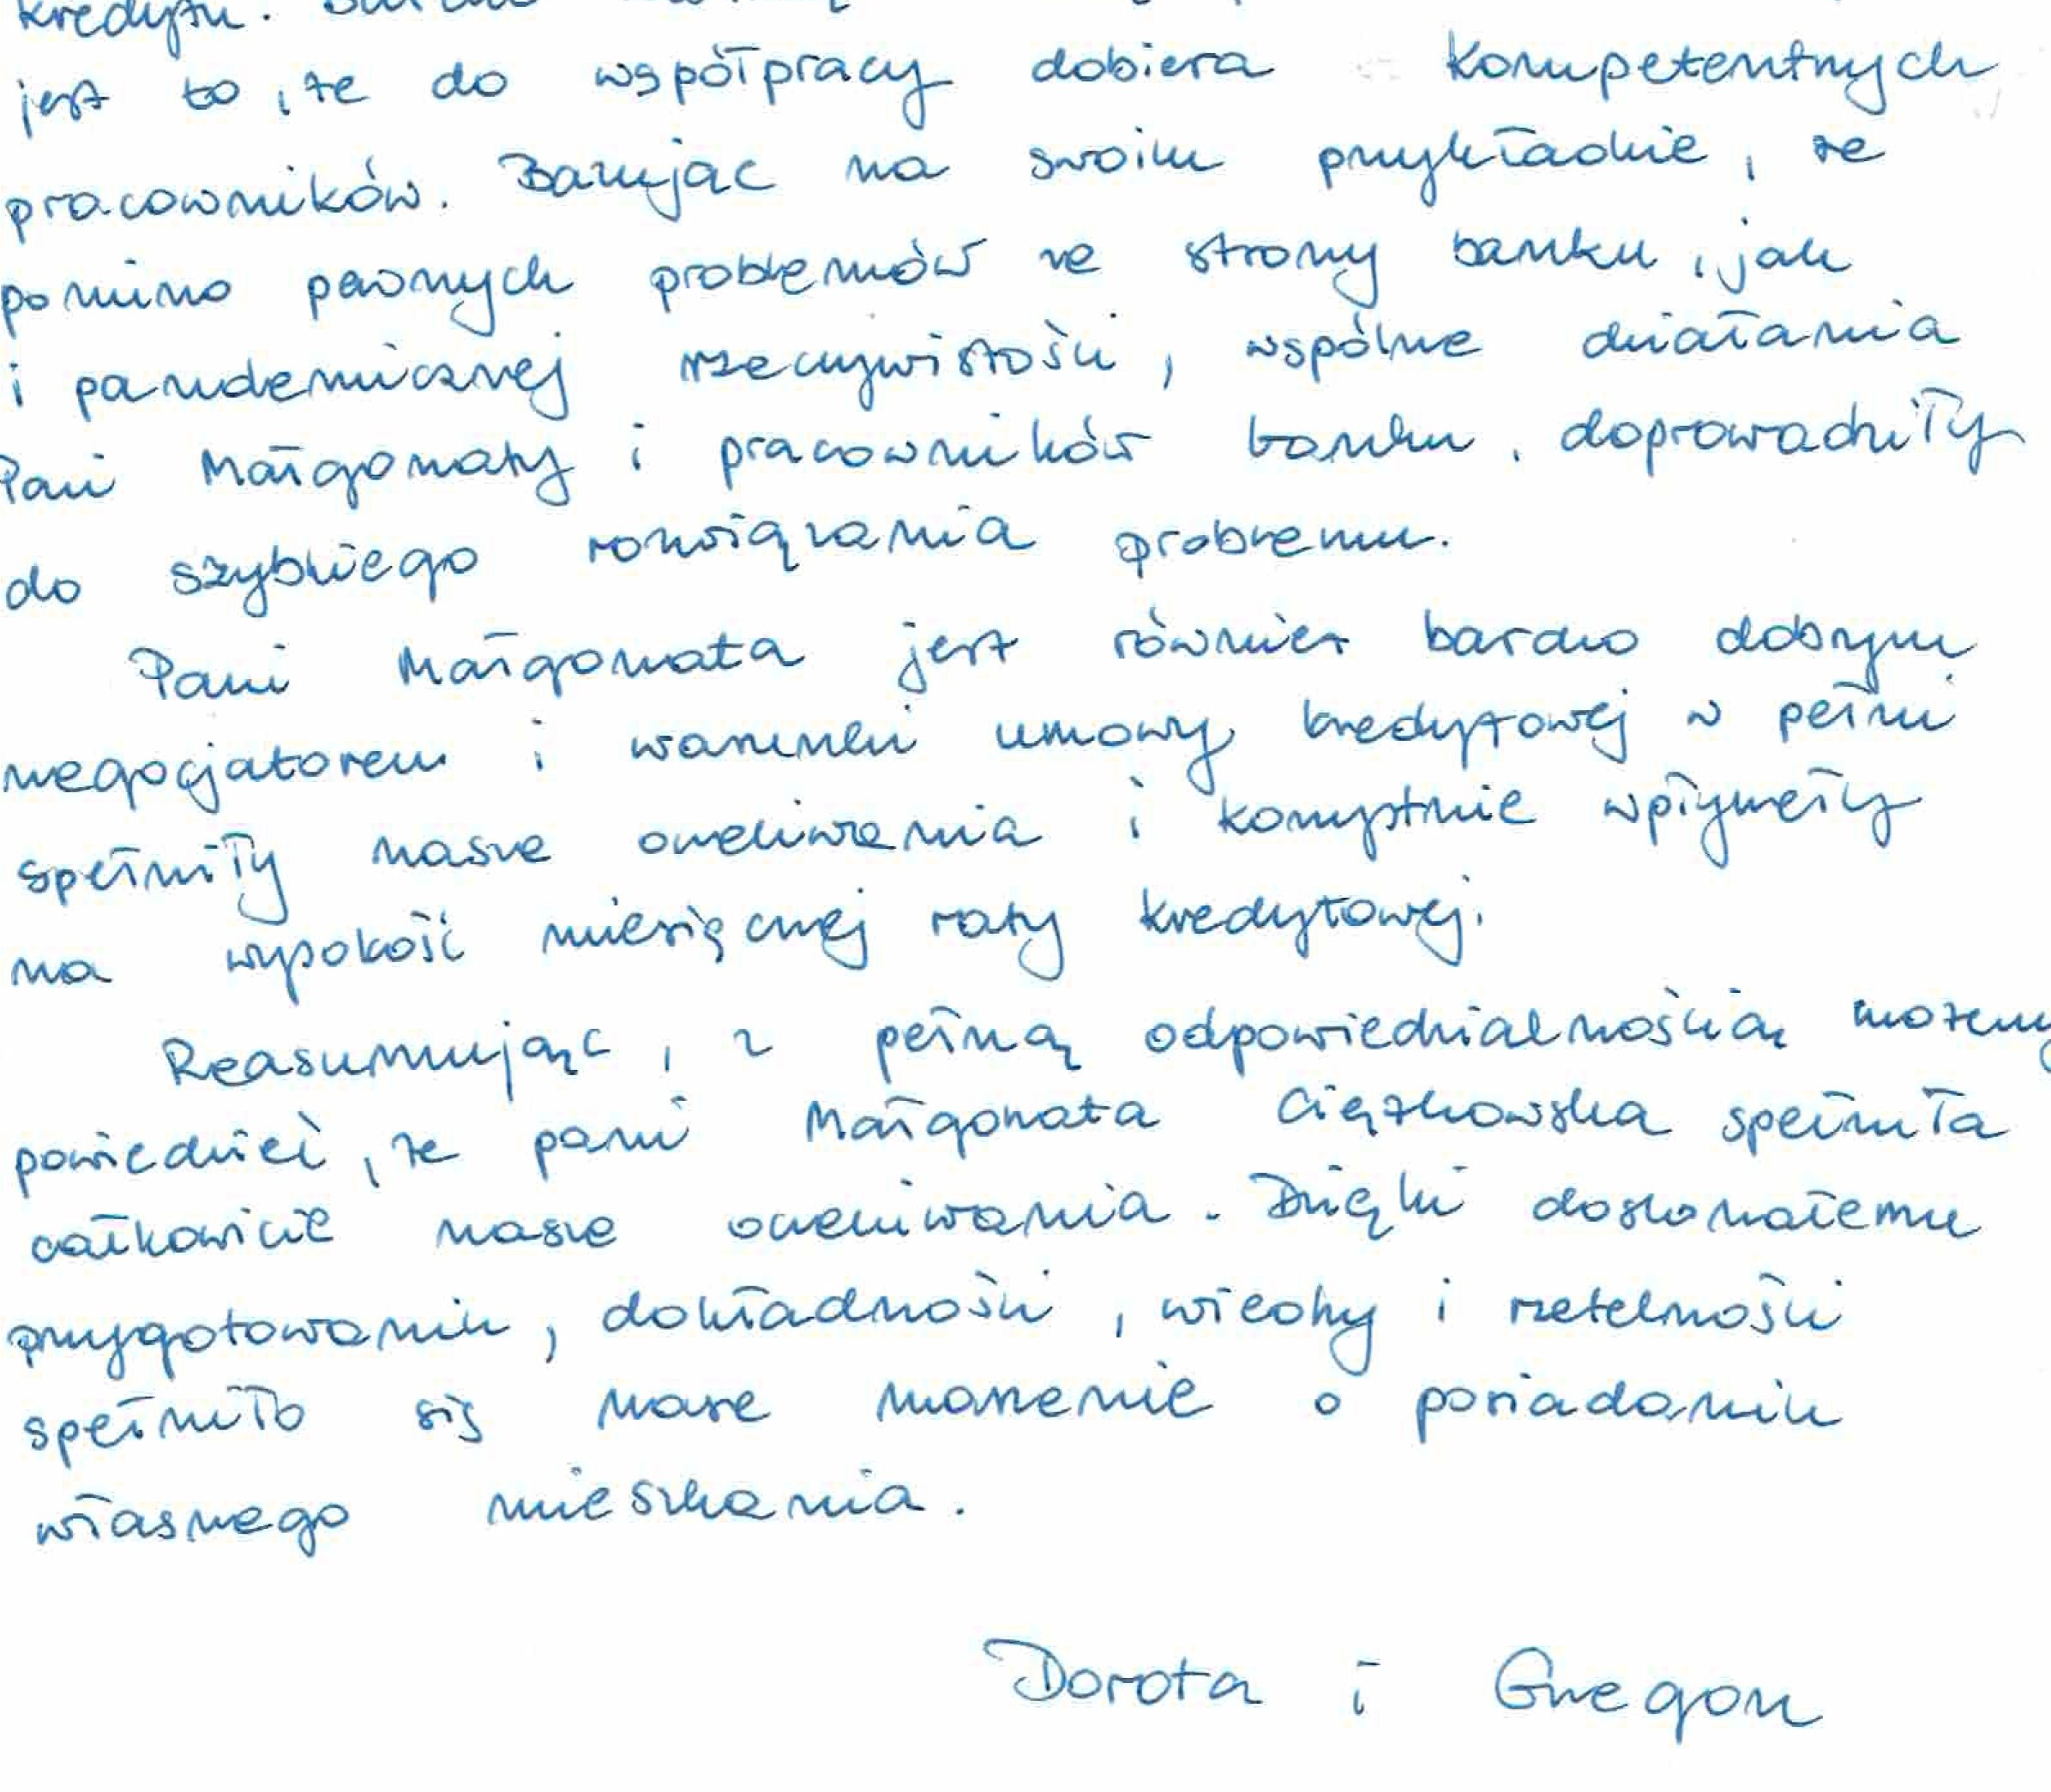 kredytu.
jest to, że do współpracy dobiera kompetentnych
pracowników. Bazując na swoim przykładzie, że
pomimo pewnych problemów ze strony banku, jak
i pandemicznej rzeczywistości, wspólne działania
Pani Małgorzaty i pracowników banku, doprowadziły
do szybkiego rozwiązania problemu.
Pani Małgorzata jest również bardzo dobrym
negocjatorem i warunki umowy kredytowej w pełni
spełniły nasze oczekiwania i korzystnie wpłynęły
na wysokość miesięcznej raty kredytowej.
Reasumując, z pełną odpowiedzialnością możemy
powiedzieć, że pani Małgorzata Ciężkowska spełniła
całkowicie nasze oczekiwania. Dzięki doskonałemu
przygotowaniu, dokładności, wiedzy i rzetelności
spełniło się nasze marzenie o posiadaniu
własnego mieszkania.
Dorota i Grzegorz